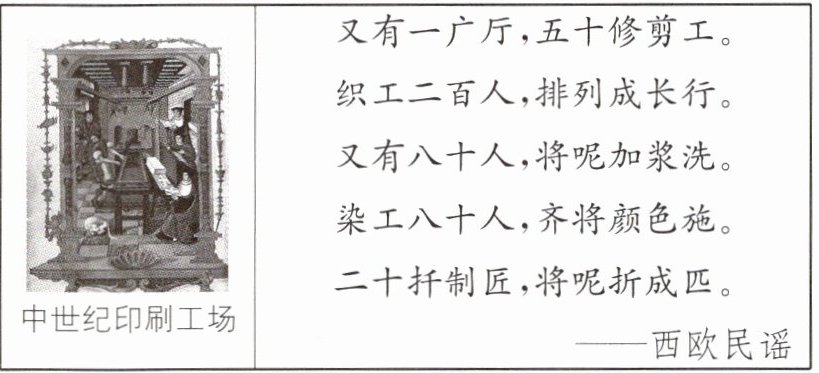 又有一广厅,五十修剪工。
织工二百人,排列成长行。
又有八十人,将呢加浆洗。
染工八十人,齐将颜色施。
二十扦制匠,将呢折成匹。
——西欧民谣
中世纪印刷工场